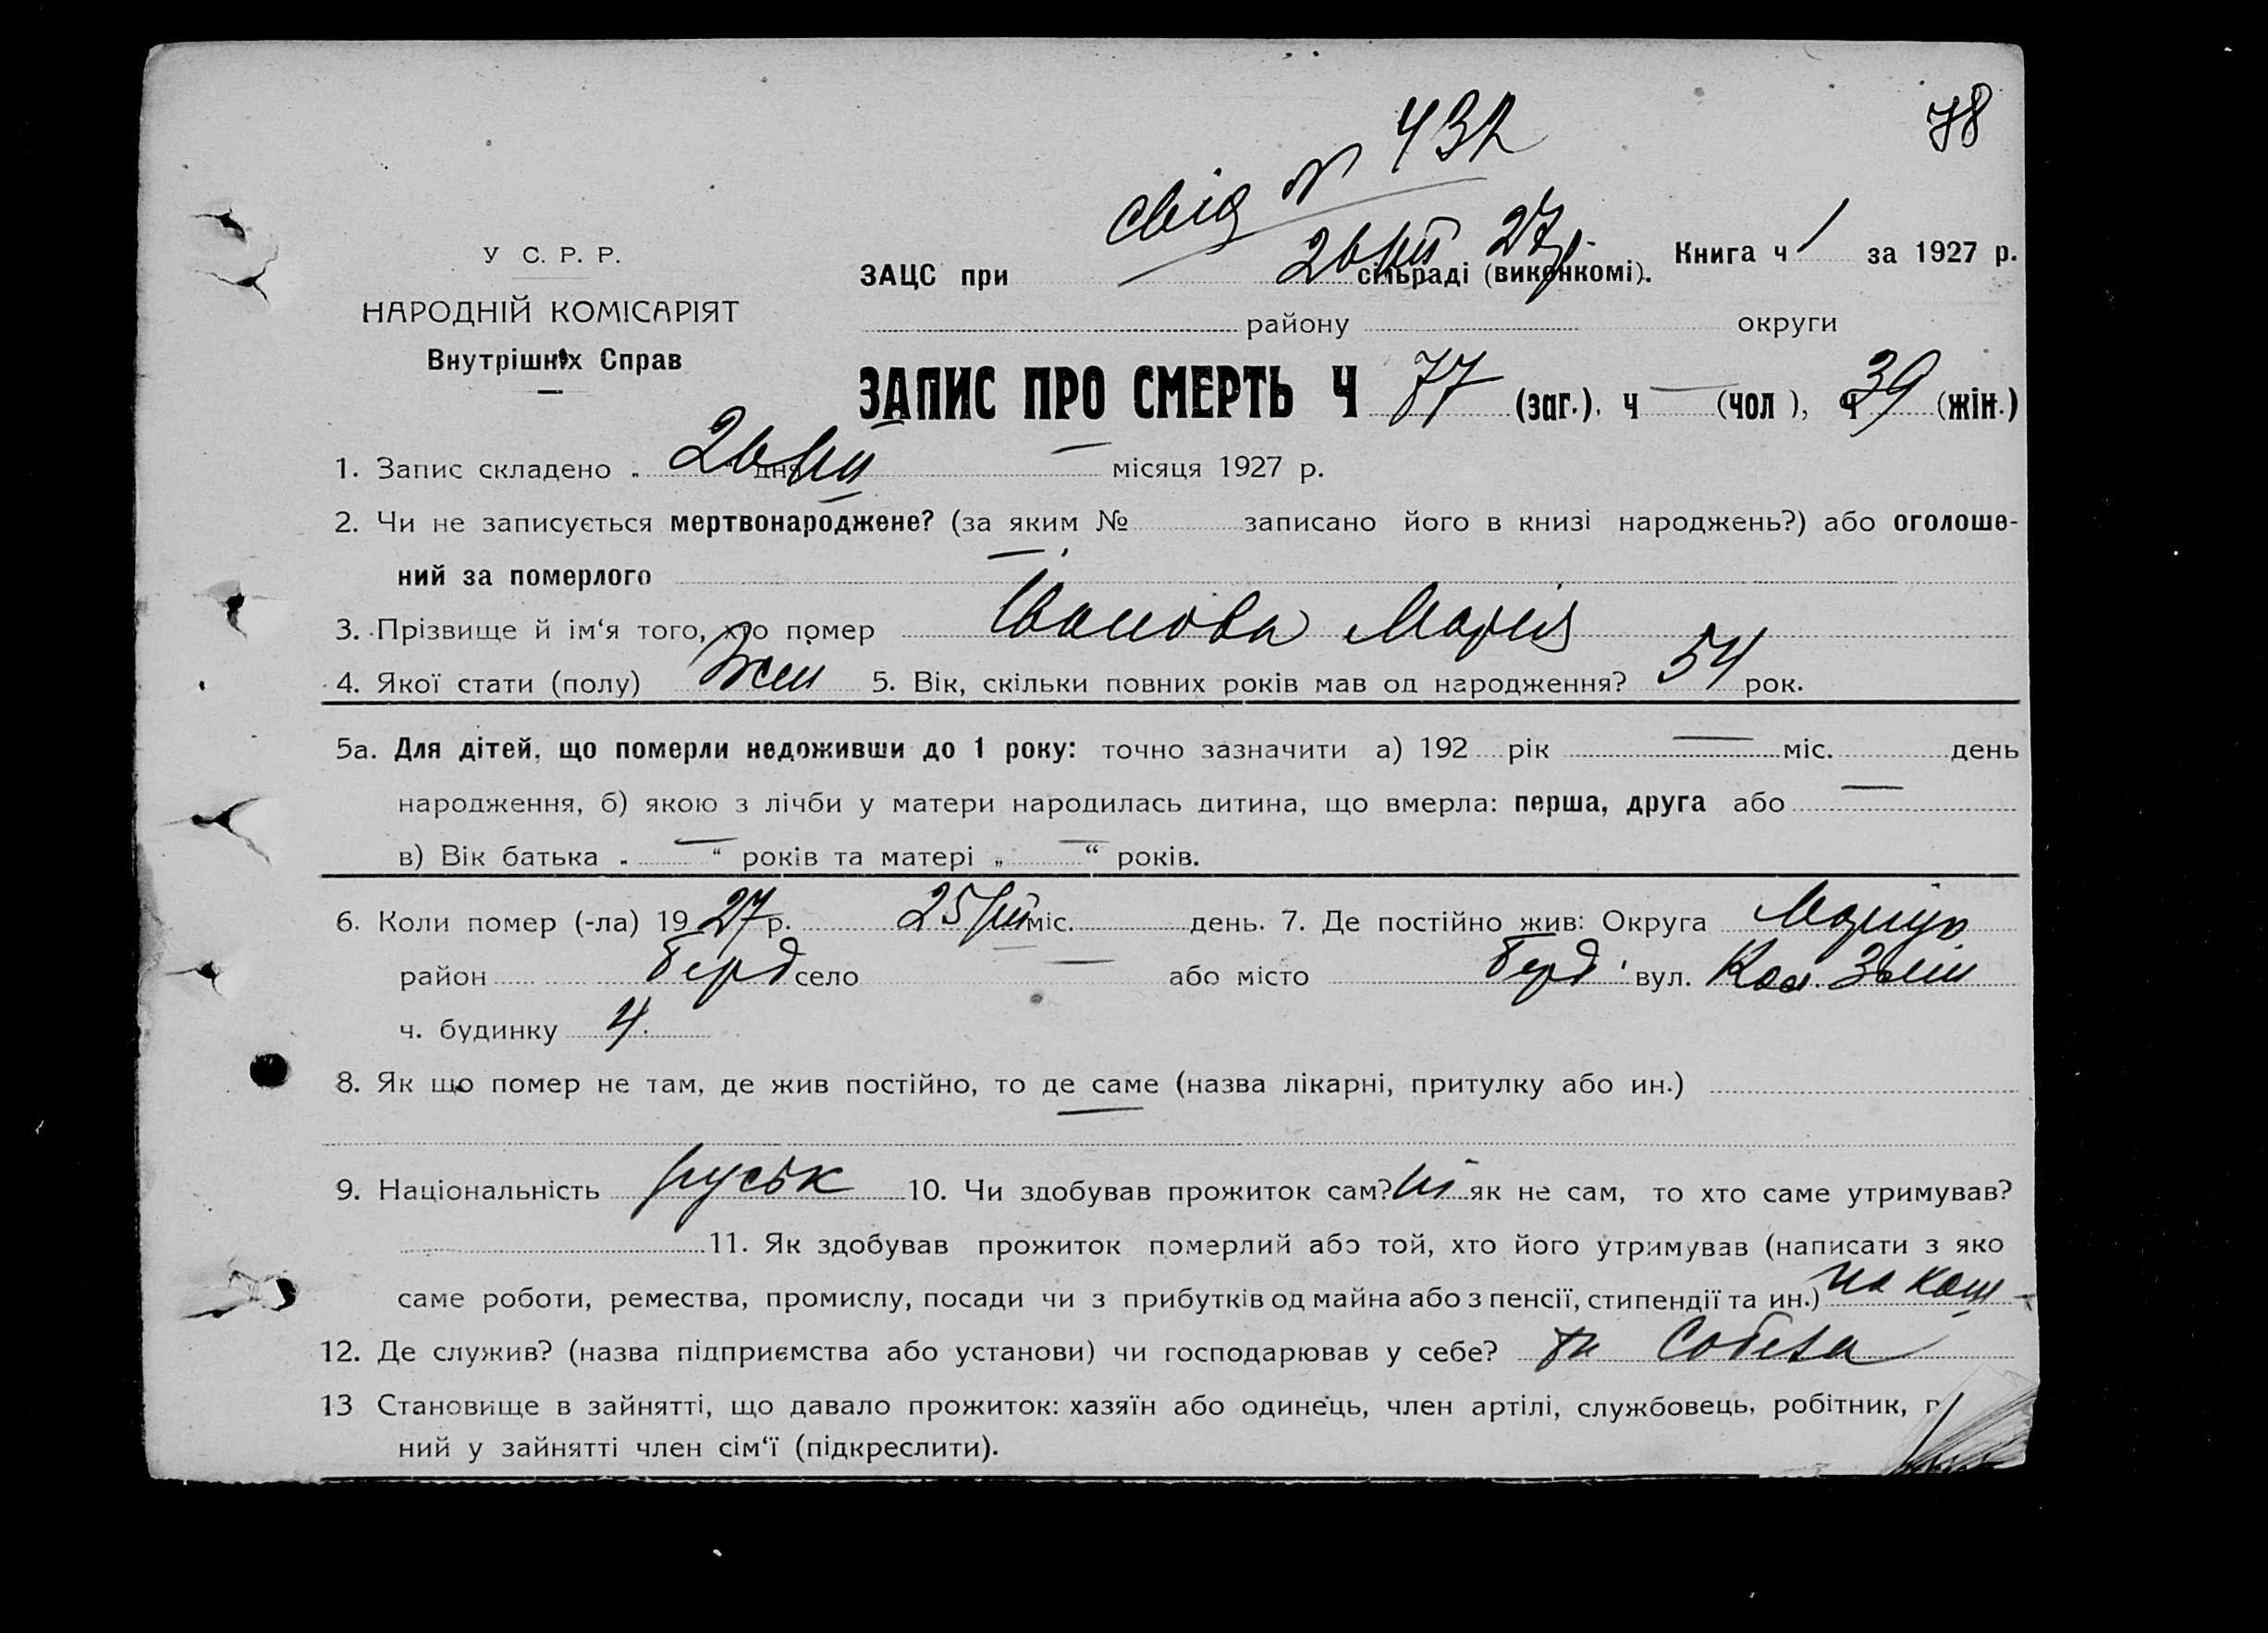 78
свід N 432
26/III 27 р.
У С. Р. Р.
НАРОДНІЙ КОМІСАРІЯТ
Внутрішніх Справ
ЗАЦС при сільраді (виконкомі). Книга ч 1 за 1927 р.
району округи
ЗАПИС ПРО СМЕРТЬ Ч 77 (заг.), ч — (чол ), ч 39 (жін.)
1. Запис складено „ 26/III дня — місяця 1927 р.
2. Чи не записується мертвонароджене? (за яким № записано його в книзі народжень?) або оголоше-
ний за померлого —
3. Прізвище й ім‘я того, хто помер Іванова Марія
4. Якої стати (полу) Жін 5. Вік, скільки повних років мав од народження? 54 рок.
5а. Для дітей, що померли недоживши до 1 року: точно зазначити а) 192 рік — міс. день
народження, б) якою з лічби у матери народилась дитина, що вмерла: перша, друга або —
в) Вік батька „ — “ років та матері „ — “ років.
6. Коли помер (-ла) 19 27 р. 25/III міс. день. 7. Де постійно жив: Округа Маріуп
район Берд село — або місто Берд вул. Кол.
ч. будинку 4.
8. Як що помер не там, де жив постійно, то де саме (назва лікарні, притулку або ин.)
—
9. Національність руськ 10. Чи здобував прожиток сам? ні як не сам, то хто саме утримував?
11. Як здобував прожиток померлий або той, хто його утримував (написати з яко
саме роботи, ремества, промислу, посади чи з прибутків од майна або з пенсії, стипендії та ин.) на кош-
12. Де служив? (назва підприємства або установи) чи господарював у себе? ти Собеза
13 Становище в зайнятті, що давало прожиток: хазяїн або одинець, член артілі, службовець, робітник,
ний у зайнятті член сім‘ї (підкреслити).